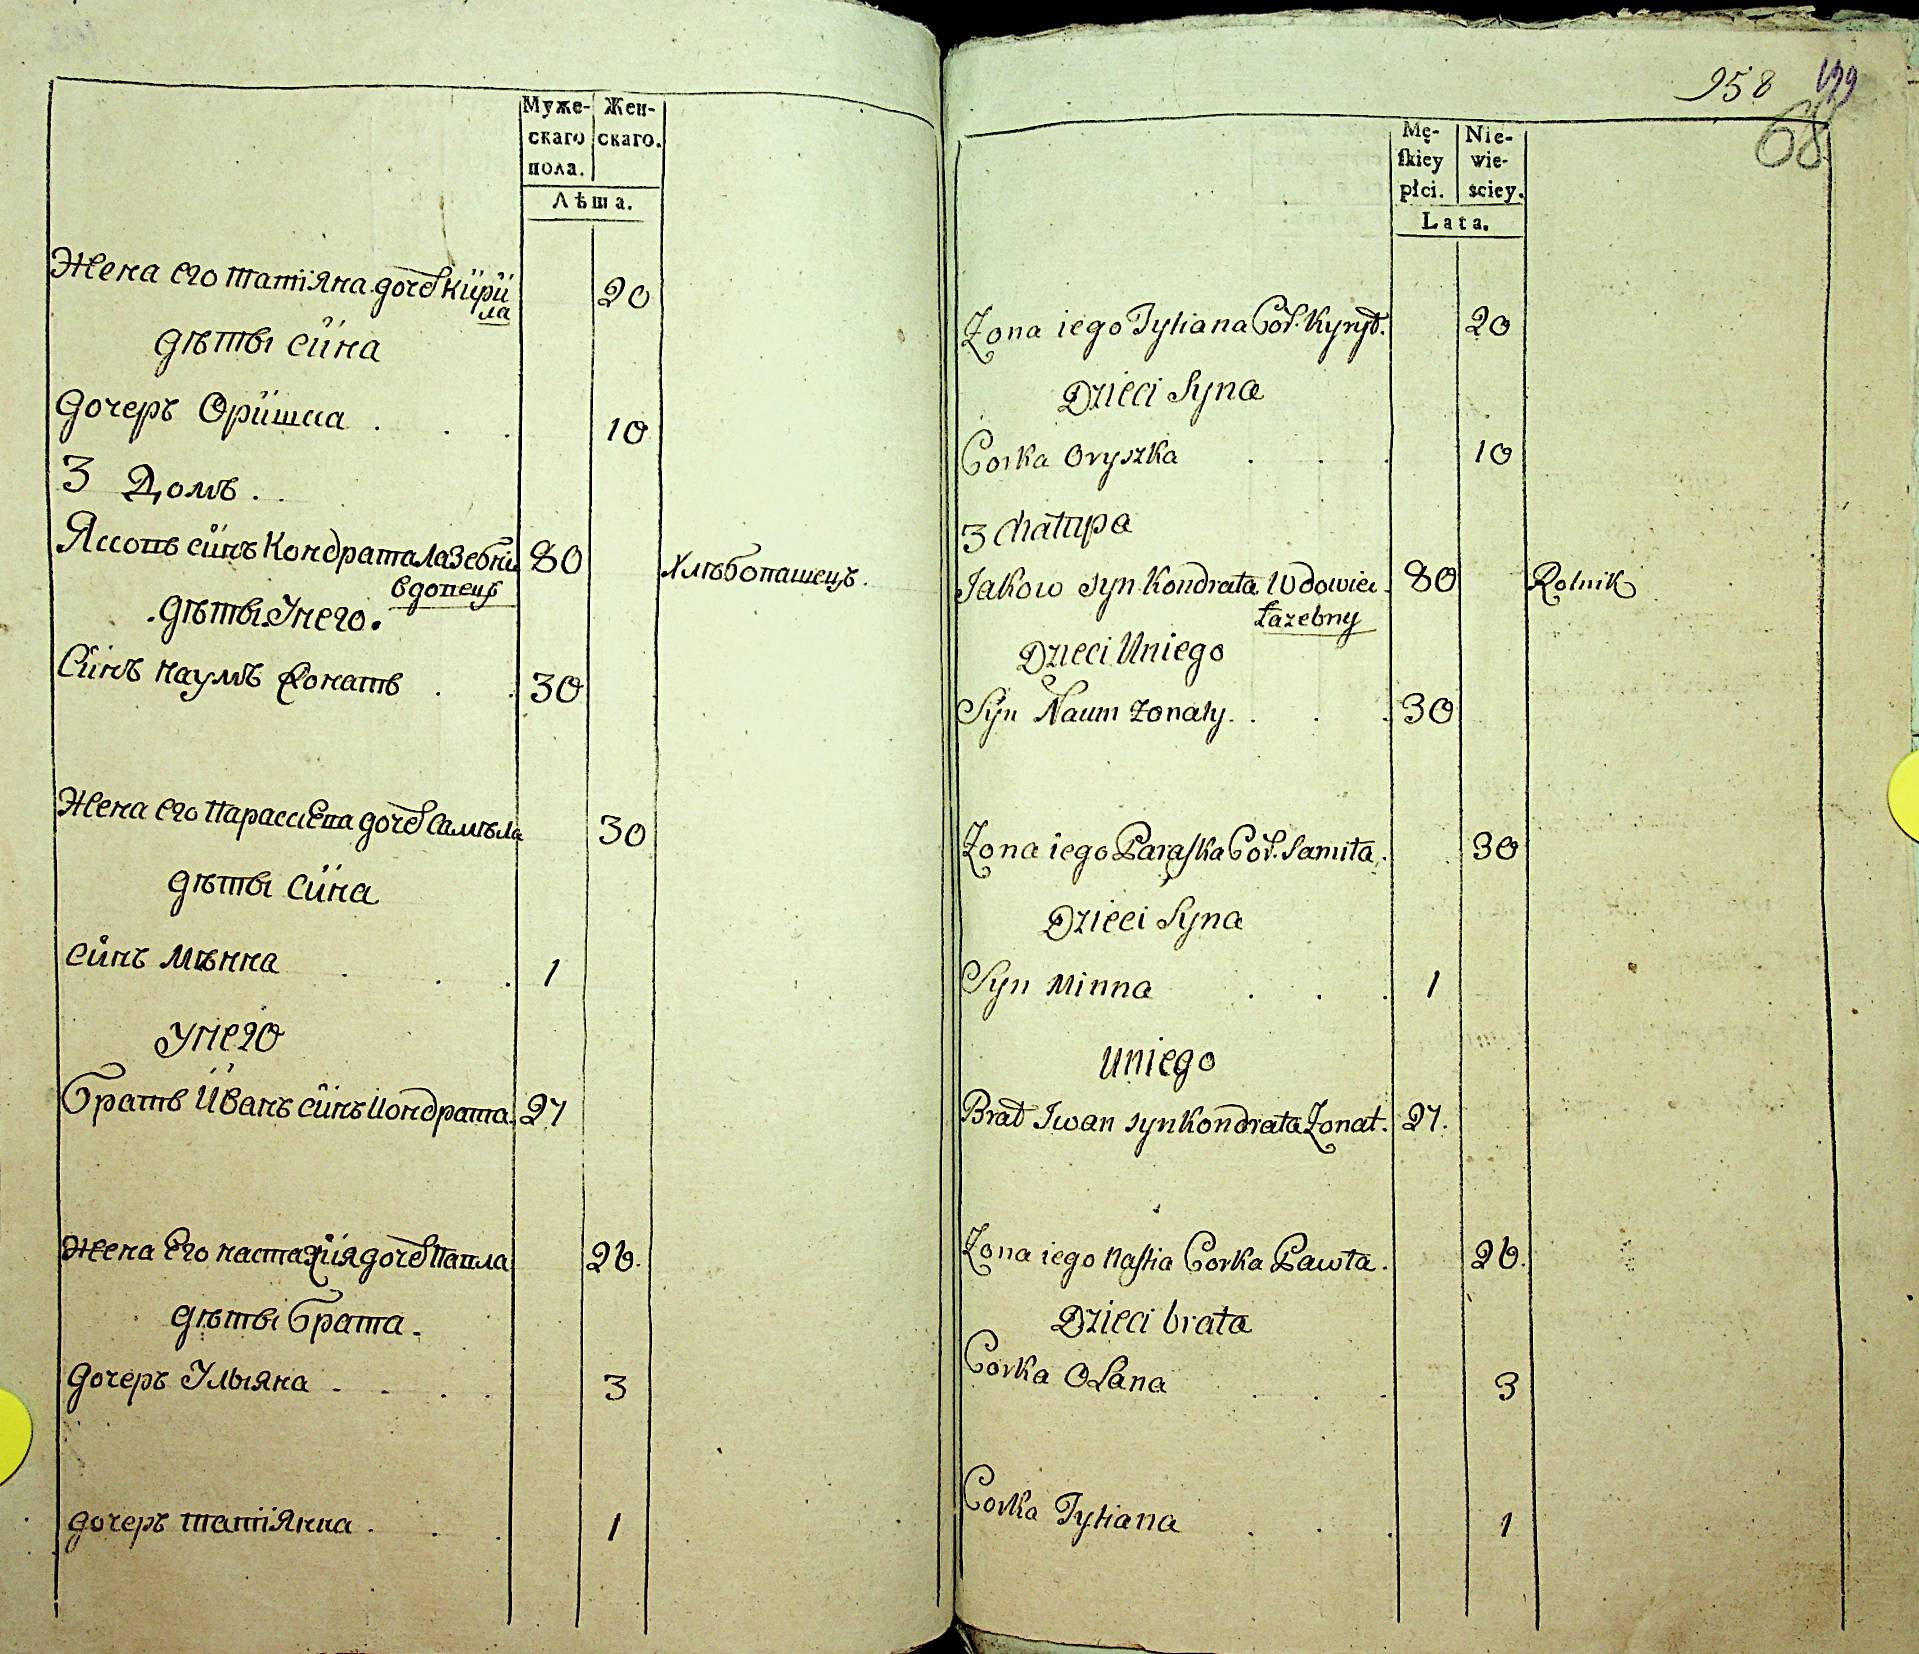 Муже- Жен-
скаго скаго.
пола.
Лѣта.
Жена его татіяна дочь Кїрїла 20
дѣты сїна
дочеръ Орїшка . . . 10
3 Домъ . .
Яковъ сїнъ Кондрата Лазебнїй 80 Хлѣбопашецъ.
вдовецъ
дѣты Унего.
Сїнъ наумъ Жонатъ . . 30
Жена его Параскева дочь Самѣла 30
дѣты сїна
сїнъ мѣнна . . . 1
Унего
братъ Їванъ сїнъ Кондрата. 27
Жена Его настазїя дочь Павла 26.
дѣты брата.
дочеръ Ульяна . . . . 3
дочеръ татіянна . . . 1
958 68
Mę- Nie-
skiey wie-
płci. sciey.
Lata.
Zona iego Tytiana Cór. Kyrył. 20
Dzieci Syna
Corka Oryszka . . . 10
3 Chałupa
Jakow syn Kondrata Wdowiec. 80 Rolnik
Łazebny
Dzieci Uniego
Syn Naum Zonaty. . . . 30
Zona iego Paraska Cór. Samiła. 30
Dzieci Syna
Syn Minna . . . 1
Uniego
Brat Iwan syn Kondrata Zonat. 27.
Zona iego Nastia Corka Pawła. 26.
Dzieci brata
Corka Olana . . . 3
Corka Tytiana . . . 1